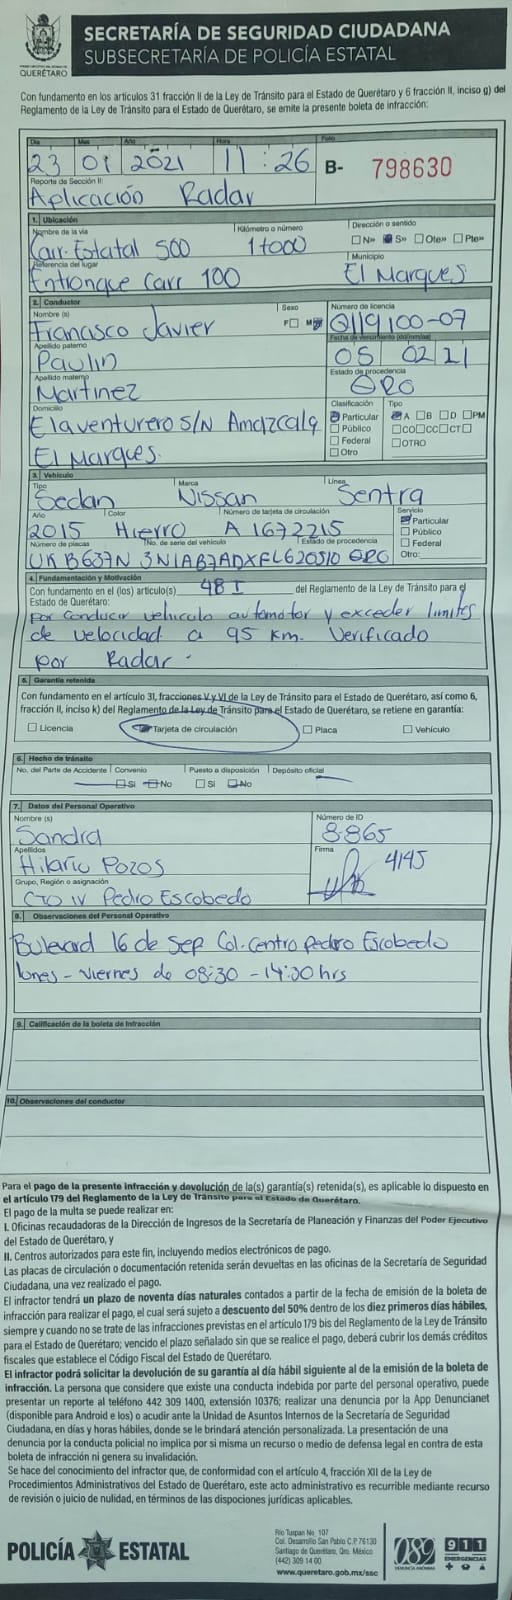 QUERÉTARO
SECRETARÍA DE SEGURIDAD CIUDADANA
SUBSECRETARÍA DE POLICÍA ESTATAL
Con fundamento en los artículos 31 fracción II de la Ley de Tránsito para el Estado de Querétaro y 6 fracción II, inciso g) del
Reglamento de la Ley de Tránsito para el Estado de Querétaro, se emite la presente boleta de infracción:
Día Mes Año Hora Folio
23 01 2021 11:26 B- 798630
Reporte de Sección II:
Aplicación Radar
1. Ubicación
Nombre de la vía Kilómetro o número Dirección o sentido
Carr. Estatal 500 1+000 N» S» Ote» Pte»
Referencia del lugar Municipio
Entronque Carr 100 El Marques
2. Conductor
Nombre (s) Sexo Número de licencia
Francisco Javier F M Q119100-07
Apellido paterno Fecha de vencimiento (dd/mm/aa)
Paulin 05 02 21
Apellido materno Estado de procedencia
Martinez QRO
Domicilio Clasificación Tipo
El aventurero S/N Amazcala Particular A B D PM
El Marques. Público CO CC CT
Federal OTRO
Otro
3. Vehículo
Tipo Marca Línea
Sedan Nissan Sentra
Año Color Número de tarjeta de circulación Servicio
2015 Hierro A 1672215 Particular
Número de placas No. de serie del vehículo Estado de procedencia Público
UKB637N 3N1AB7ADXFL620510 QRO Federal
Otro:
4. Fundamentación y Motivación
Con fundamento en el (los) artículo(s) 48 I del Reglamento de la Ley de Tránsito para el
Estado de Querétaro:
por conducir vehiculo automotor y exceder limites
de velocidad a 95 km. Verificado
por Radar.
5. Garantía retenida
Con fundamento en el artículo 31, fracciones V y VI de la Ley de Tránsito para el Estado de Querétaro, así como 6,
fracción II, inciso k) del Reglamento de la Ley de Tránsito para el Estado de Querétaro, se retiene en garantía:
Licencia Tarjeta de circulación Placa Vehículo
6. Hecho de tránsito
No. del Parte de Accidente Convenio Puesto a disposición Depósito oficial
Si No Si No
7. Datos del Personal Operativo
Nombre (s) Número de ID
Sandra 8865
Apellidos Firma
Hilario Pozos 4145
Grupo, Región o asignación
CTO IV Pedro Escobedo
8. Observaciones del Personal Operativo
Bulevard 16 de Sep. Col. Centro Pedro Escobedo
lunes - viernes de 08:30 - 14:30 hrs
9. Calificación de la boleta de infracción
10. Observaciones del conductor
Para el pago de la presente infracción y devolución de la(s) garantía(s) retenida(s), es aplicable lo dispuesto en
el artículo 179 del Reglamento de la Ley de Tránsito para el Estado de Querétaro.
El pago de la multa se puede realizar en:
I. Oficinas recaudadoras de la Dirección de Ingresos de la Secretaría de Planeación y Finanzas del Poder Ejecutivo
del Estado de Querétaro, y
II. Centros autorizados para este fin, incluyendo medios electrónicos de pago.
Las placas de circulación o documentación retenida serán devueltas en las oficinas de la Secretaría de Seguridad
Ciudadana, una vez realizado el pago.
El infractor tendrá un plazo de noventa días naturales contados a partir de la fecha de emisión de la boleta de
infracción para realizar el pago, el cual será sujeto a descuento del 50% dentro de los diez primeros días hábiles,
siempre y cuando no se trate de las infracciones previstas en el artículo 179 bis del Reglamento de la Ley de Tránsito
para el Estado de Querétaro; vencido el plazo señalado sin que se realice el pago, deberá cubrir los demás créditos
fiscales que establece el Código Fiscal del Estado de Querétaro.
El infractor podrá solicitar la devolución de su garantía al día hábil siguiente al de la emisión de la boleta de
infracción. La persona que considere que existe una conducta indebida por parte del personal operativo, puede
presentar un reporte al teléfono 442 309 1400, extensión 10376; realizar una denuncia por la App Denuncianet
(disponible para Android e Ios) o acudir ante la Unidad de Asuntos Internos de la Secretaría de Seguridad
Ciudadana, en días y horas hábiles, donde se le brindará atención personalizada. La presentación de una
denuncia por la conducta policial no implica por si misma un recurso o medio de defensa legal en contra de esta
boleta de infracción ni genera su invalidación.
Se hace del conocimiento del infractor que, de conformidad con el artículo 4, fracción XII de la Ley de
Procedimientos Administrativos del Estado de Querétaro, este acto administrativo es recurrible mediante recurso
de revisión o juicio de nulidad, en términos de las dispociones jurídicas aplicables.
POLICÍA ESTATAL
Río Tuxpan No. 107
Col. Desarrollo San Pablo C.P. 76130
Santiago de Querétaro, Qro. México
(442) 309 14 00
www.queretaro.gob.mx/ssc
089
DENUNCIA ANÓNIMA
911
EMERGENCIAS